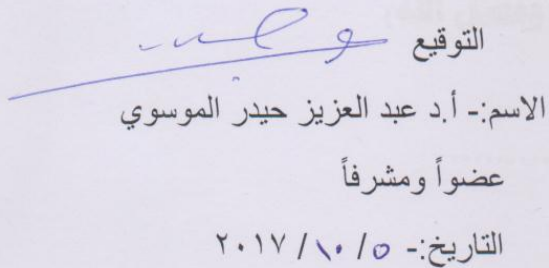 التوقيع
الاسم:- أ.د عبد العزيز حيدر الموسوي
عضواً ومشرفاً
التاريخ:- ٥ / ١٠ / ٢٠١٧